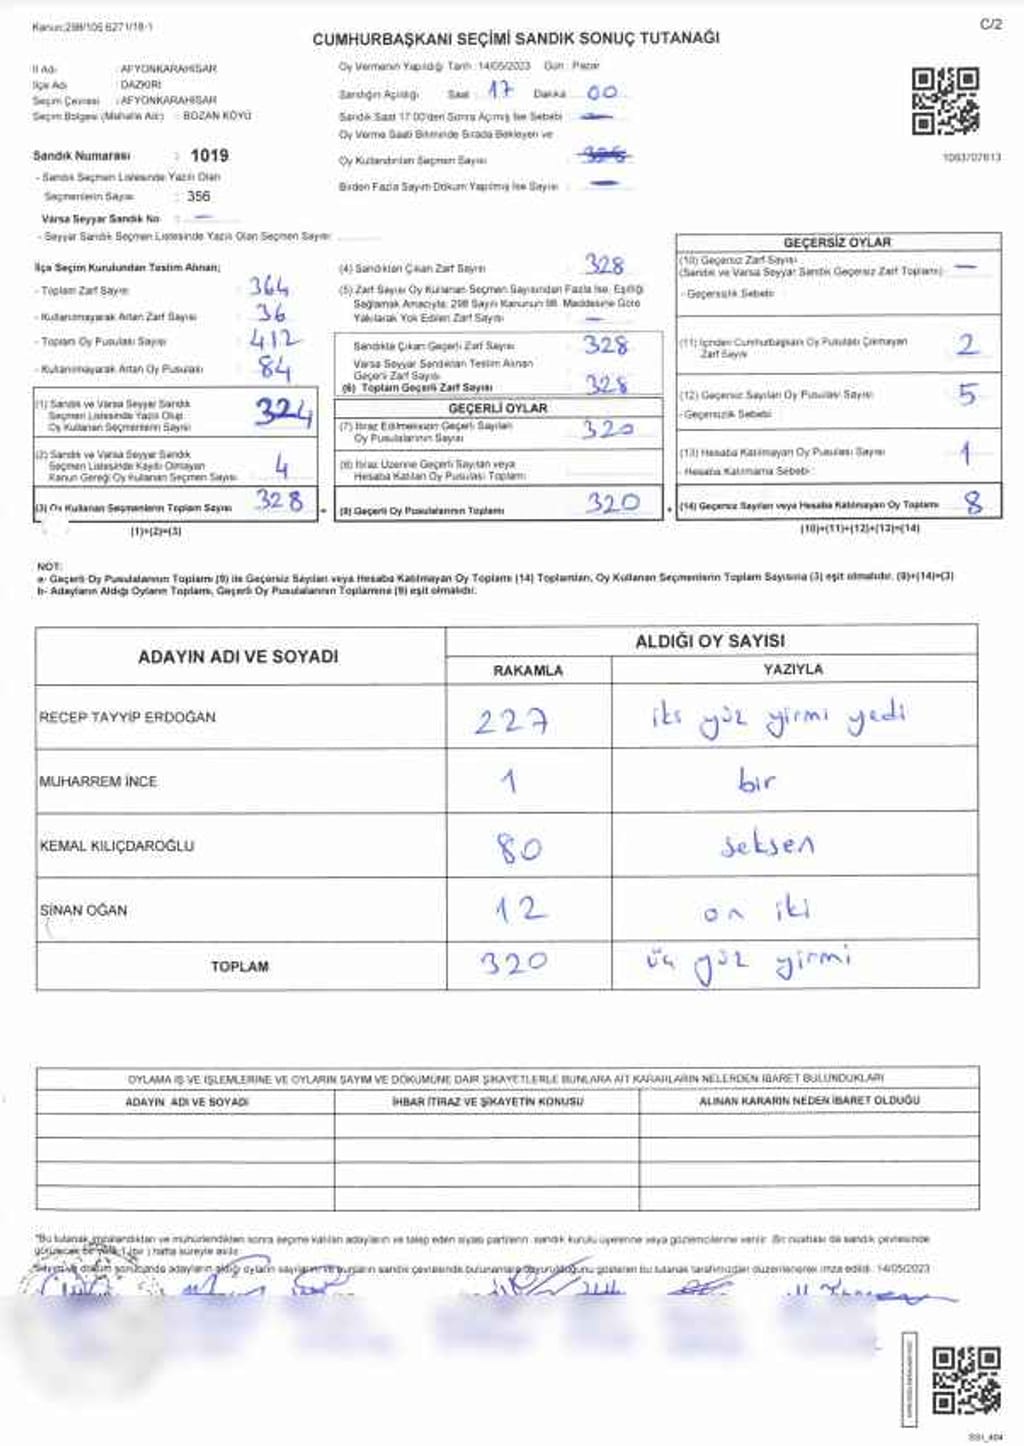 Kanun:298/105 6271/18-1
C/2
CUMHURBAŞKANI SEÇİMİ SANDIK SONUÇ TUTANAĞI
İl Adı : AFYONKARAHİSAR
İlçe Adı : DAZKIRI
Seçim Çevresi : AFYONKARAHİSAR
Seçim Bölgesi (Mahalle Adı) : BOZAN KÖYÜ
Sandık Numarası : 1019
- Sandık Seçmen Listesinde Yazılı Olan
Seçmenlerin Sayısı : 356
Varsa Seyyar Sandık No : —
- Seyyar Sandık Seçmen Listesinde Yazılı Olan Seçmen Sayısı
Oy Vermenin Yapıldığı Tarih : 14/05/2023 Gün : Pazar
Sandığın Açıldığı Saat : 17 Dakika : 00
Sandık Saat 17.00'den Sonra Açılmış İse Sebebi : —
Oy Verme Saati Bitiminde Sırada Bekleyen ve
Oy Kullandırılan Seçmen Sayısı :
Birden Fazla Sayım Döküm Yapılmış İse Sayısı : —
1063707613
İlçe Seçim Kurulundan Teslim Alınan;
- Toplam Zarf Sayısı : 364
- Kullanılmayarak Artan Zarf Sayısı : 36
- Toplam Oy Pusulası Sayısı : 412
- Kullanılmayarak Artan Oy Pusulası : 84
(1) Sandık ve Varsa Seyyar Sandık
Seçmen Listesinde Yazılı Olup
Oy Kullanan Seçmenlerin Sayısı 324
(2) Sandık ve Varsa Seyyar Sandık
Seçmen Listesinde Kaydı Olmayan
Kanun Gereği Oy Kullanan Seçmen Sayısı 4
(3) Oy Kullanan Seçmenlerin Toplam Sayısı 328
(1)+(2)=(3)
(4) Sandıktan Çıkan Zarf Sayısı : 328
(5) Zarf Sayısı Oy Kullanan Seçmen Sayısından Fazla İse, Eşitliği
Sağlamak Amacıyla; 298 Sayılı Kanunun 98. Maddesine Göre
Yakılarak Yok Edilen Zarf Sayısı : —
Sandıkta Çıkan Geçerli Zarf Sayısı : 328
Varsa Seyyar Sandıktan Teslim Alınan
Geçerli Zarf Sayısı
(6) Toplam Geçerli Zarf Sayısı 328
GEÇERLİ OYLAR
(7) İtiraz Edilmeksizin Geçerli Sayılan
Oy Pusulalarının Sayısı 320
(8) İtiraz Üzerine Geçerli Sayılan veya
Hesaba Katılan Oy Pusulası Toplamı
(9) Geçerli Oy Pusulalarının Toplamı 320
GEÇERSİZ OYLAR
(10) Geçersiz Zarf Sayısı
(Sandık ve Varsa Seyyar Sandık Geçersiz Zarf Toplamı) : —
- Geçersizlik Sebebi
(11) İçinden Cumhurbaşkanı Oy Pusulası Çıkmayan
Zarf Sayısı 2
(12) Geçersiz Sayılan Oy Pusulası Sayısı 5
- Geçersizlik Sebebi :
(13) Hesaba Katılmayan Oy Pusulası Sayısı 1
- Hesaba Katılmama Sebebi :
(14) Geçersiz Sayılan veya Hesaba Katılmayan Oy Toplamı 8
(10)+(11)+(12)+(13)=(14)
NOT:
a- Geçerli Oy Pusulalarının Toplamı (9) ile Geçersiz Sayılan veya Hesaba Katılmayan Oy Toplamı (14) Toplamları, Oy Kullanan Seçmenlerin Toplam Sayısına (3) eşit olmalıdır. (9)+(14)=(3)
b- Adayların Aldığı Oyların Toplamı, Geçerli Oy Pusulalarının Toplamına (9) eşit olmalıdır.
ADAYIN ADI VE SOYADI
ALDIĞI OY SAYISI
RAKAMLA YAZIYLA
RECEP TAYYİP ERDOĞAN 227 iki yüz yirmi yedi
MUHARREM İNCE 1 bir
KEMAL KILIÇDAROĞLU 80 seksen
SİNAN OĞAN 12 on iki
TOPLAM 320 üç yüz yirmi
OYLAMA İŞ VE İŞLEMLERİNE VE OYLARIN SAYIM VE DÖKÜMÜNE DAİR ŞİKAYETLERLE BUNLARA AİT KARARLARIN NELERDEN İBARET BULUNDUKLARI
ADAYIN ADI VE SOYADI İHBAR İTİRAZ VE ŞİKAYETİN KONUSU ALINAN KARARIN NEDEN İBARET OLDUĞU
*Bu tutanak imzalandıktan ve mühürlendikten sonra seçime katılan adayların ve talep eden siyasi partilerin sandık kurulu üyelerine veya gözlemcilerine verilir. Bir nüshası da sandık çevresinde
görülecek bir yere 1 (bir) hafta süreyle asılır.
Sayım ve döküm sonucunda adayların aldığı oyların sayıları ve bunların sandık çevresinde bulunanlara duyurulduğunu gösteren bu tutanak tarafımızdan düzenlenerek imza edildi. 14/05/2023